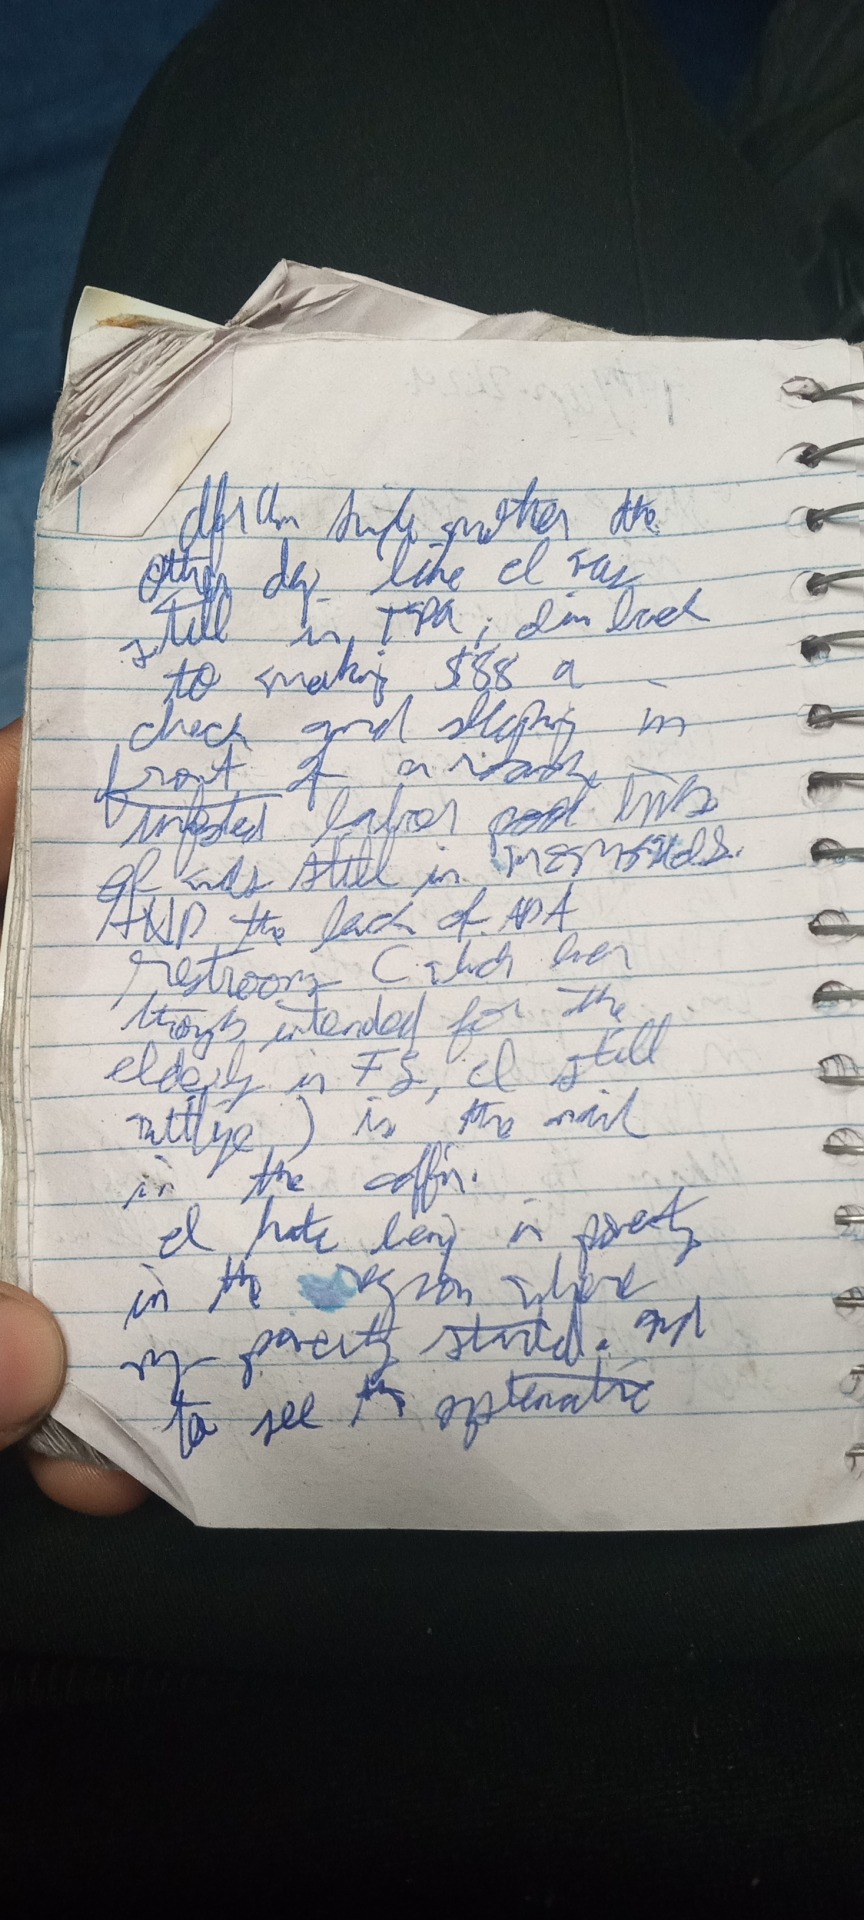 single mother the
other day like I was
still in TPA; I'm back
to making $88 a
check and sleeping in
front of a roach
infested labor pool
still in
AND the lack of ADA
restrooms (which even
though intended for the
elderly in FS, I still
utilize) is the nail
in the coffin.
I hate being in poverty
in the region where
my poverty started. and
to see the systematic